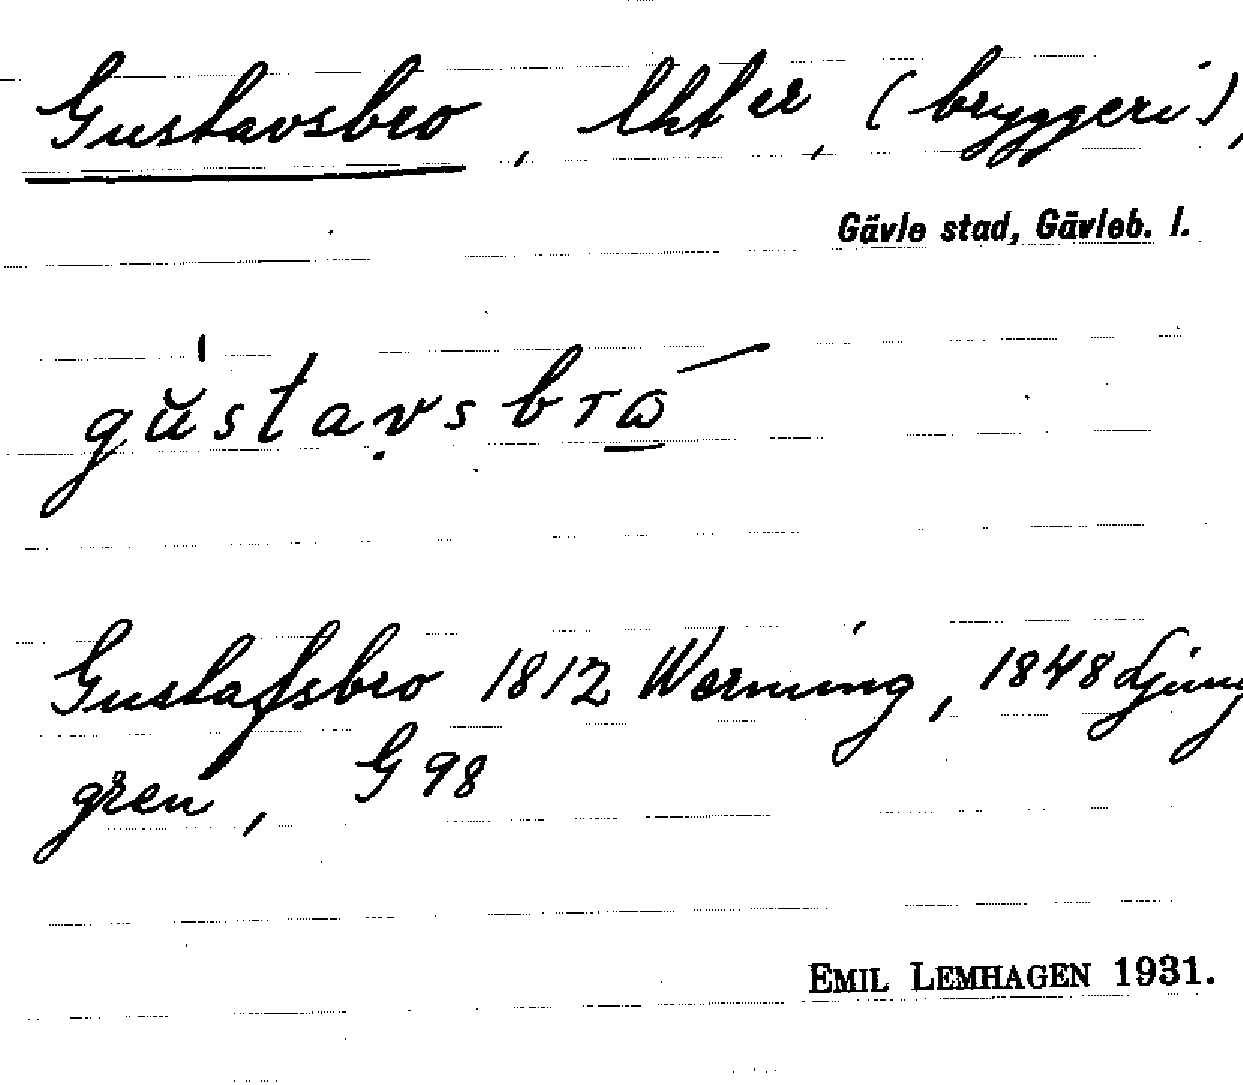 Gustavsbro, lht er, (bryggeri),
Gävle stad, Gävleb. l.
gustavsbro
Gustafsbro 1812 Werming, 1848 Ljung
gren, G 98
EMIL LEMHAGEN 1931.